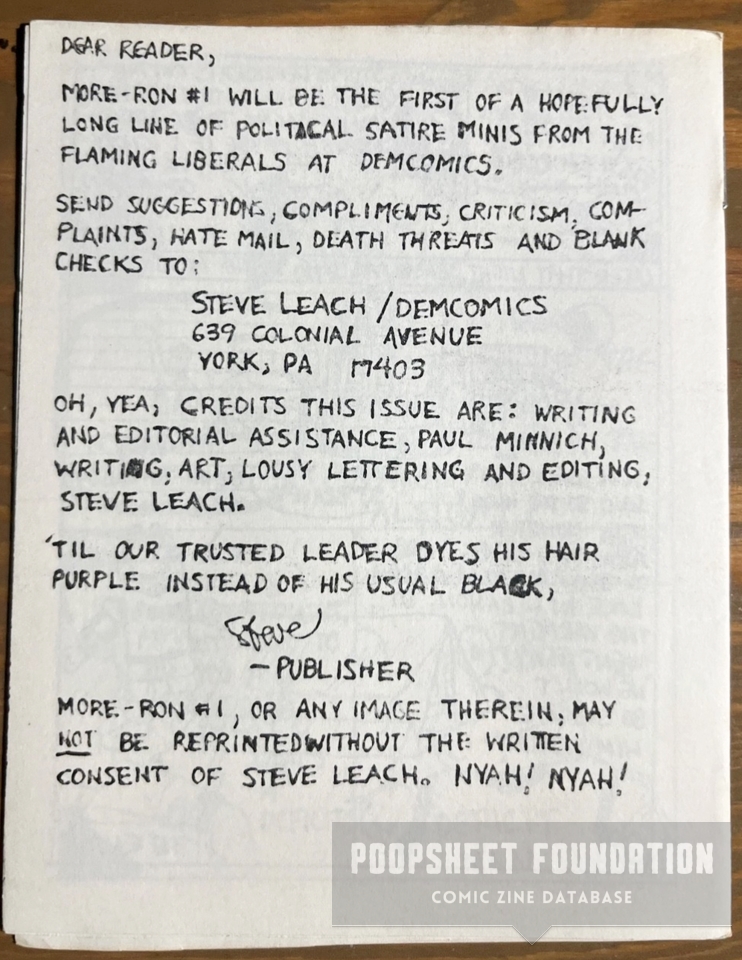 DEAR READER,
MORE-RON #1 WILL BE THE FIRST OF A HOPEFULLY
LONG LINE OF POLITACAL SATIRE MINIS FROM THE
FLAMING LIBERALS AT DEMCOMICS.
SEND SUGGESTIONS, COMPLIMENTS, CRITICISM, COM-
PLAINTS, HATE MAIL, DEATH THREATS AND BLANK
CHECKS TO:
STEVE LEACH/DEMCOMICS
639 COLONIAL AVENUE
YORK, PA 17403
OH, YEA, CREDITS THIS ISSUE ARE: WRITING
AND EDITORIAL ASSISTANCE, PAUL MINNICH,
WRITING, ART, LOUSY LETTERING AND EDITING,
STEVE LEACH.
'TIL OUR TRUSTED LEADER DYES HIS HAIR
PURPLE INSTEAD OF HIS USUAL BLACK,
Steve
-PUBLISHER
MORE-RON #1, OR ANY IMAGE THEREIN, MAY
NOT BE REPRINTED WITHOUT THE WRITTEN
CONSENT OF STEVE LEACH. NYAH! NYAH!
POOPSHEET FOUNDATION
COMIC ZINE DATABASE